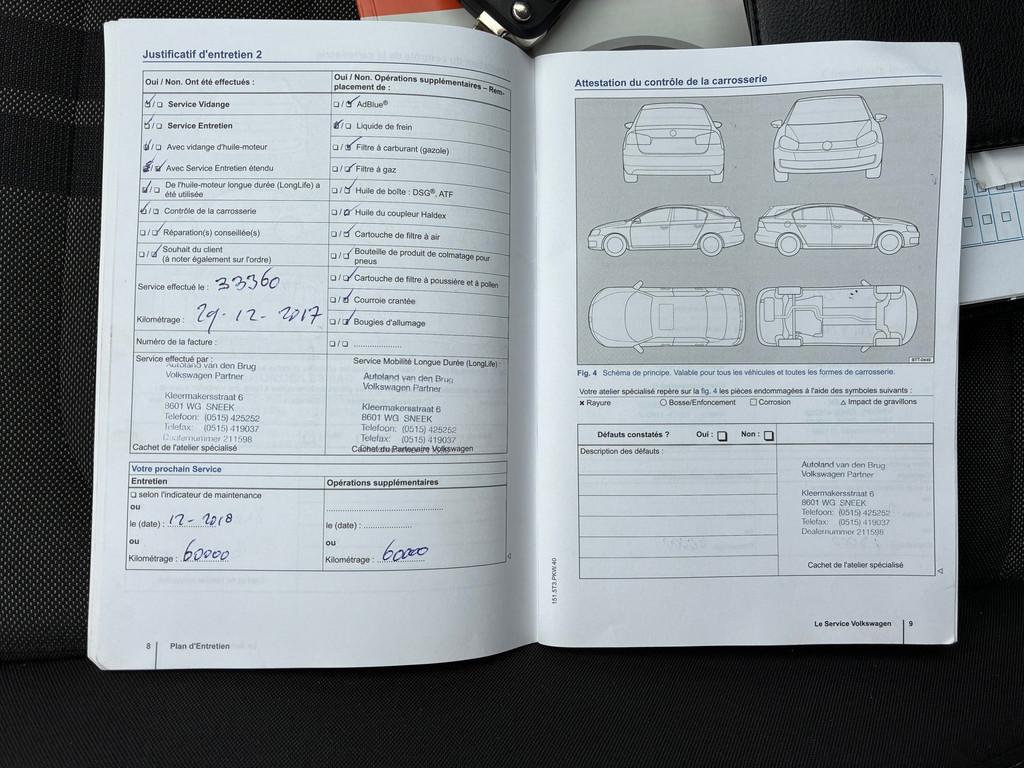 Justificatif d'entretien 2
Oui / Non. Ont été effectués :
☑/☐ Service Vidange
☑/☐ Service Entretien
☑/☐ Avec vidange d'huile-moteur
☑/☑ Avec Service Entretien étendu
☑/☐ De l'huile-moteur longue durée (LongLife) a
été utilisée
☑/☐ Contrôle de la carrosserie
☐/☑ Réparation(s) conseillée(s)
☐/☑ Souhait du client
(à noter également sur l'ordre)
Service effectué le : 33360
Kilométrage : 29-12-2017
Numéro de la facture :
Oui / Non. Opérations supplémentaires – Rem-
placement de :
☐/☑ AdBlue®
☑/☐ Liquide de frein
☐/☑ Filtre à carburant (gazole)
☐/☑ Filtre à gaz
☐/☑ Huile de boîte : DSG®, ATF
☐/☑ Huile du coupleur Haldex
☐/☑ Cartouche de filtre à air
☐/☑ Bouteille de produit de colmatage pour
pneus
☐/☑ Cartouche de filtre à poussière et à pollen
☐/☑ Courroie crantée
☐/☑ Bougies d'allumage
☐/☐ ....................
Service effectué par :
Autoland van den Brug
Volkswagen Partner
Kleermakersstraat 6
8601 WG SNEEK
Telefoon: (0515) 425252
Telefax: (0515) 419037
Dealernummer 211598
Cachet de l'atelier spécialisé
Service Mobilité Longue Durée (LongLife) :
Autoland van den Brug
Volkswagen Partner
Kleermakersstraat 6
8601 WG SNEEK
Telefoon: (0515) 425252
Telefax: (0515) 419037
Cachet du Partenaire Volkswagen
Votre prochain Service
Entretien
☐ selon l'indicateur de maintenance
ou
le (date) : 12-2018
ou
Kilométrage : 60000
Opérations supplémentaires
le (date) : ....................
ou
Kilométrage : 60000
8 Plan d'Entretien
Attestation du contrôle de la carrosserie
BTT-0449
Fig. 4 Schéma de principe. Valable pour tous les véhicules et toutes les formes de carrosserie.
Votre atelier spécialisé repère sur la fig. 4 les pièces endommagées à l'aide des symboles suivants :
✖ Rayure ○ Bosse/Enfoncement ☐ Corrosion △ Impact de gravillons
Défauts constatés ? Oui : ☐ Non : ☐
Description des défauts :
Autoland van den Brug
Volkswagen Partner
Kleermakersstraat 6
8601 WG SNEEK
Telefoon: (0515) 425252
Telefax: (0515) 419037
Dealernummer 211598
Cachet de l'atelier spécialisé
151.5T3.PKW.40
Le Service Volkswagen 9